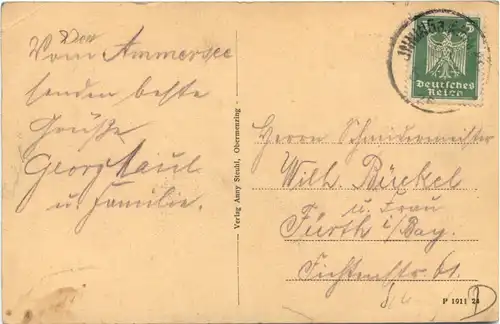 Vom Ammersee
senden beste
Grüße
Georg Kaul
u. Familie.
Verlag Anny Steubl, Obermenzing.
5
Deutsches
Reich
Herrn Schneidermeister
Wilh. Bückel
u. Frau
Fürth i/Bay.
Fichtenstr. 61.
P 1911 24